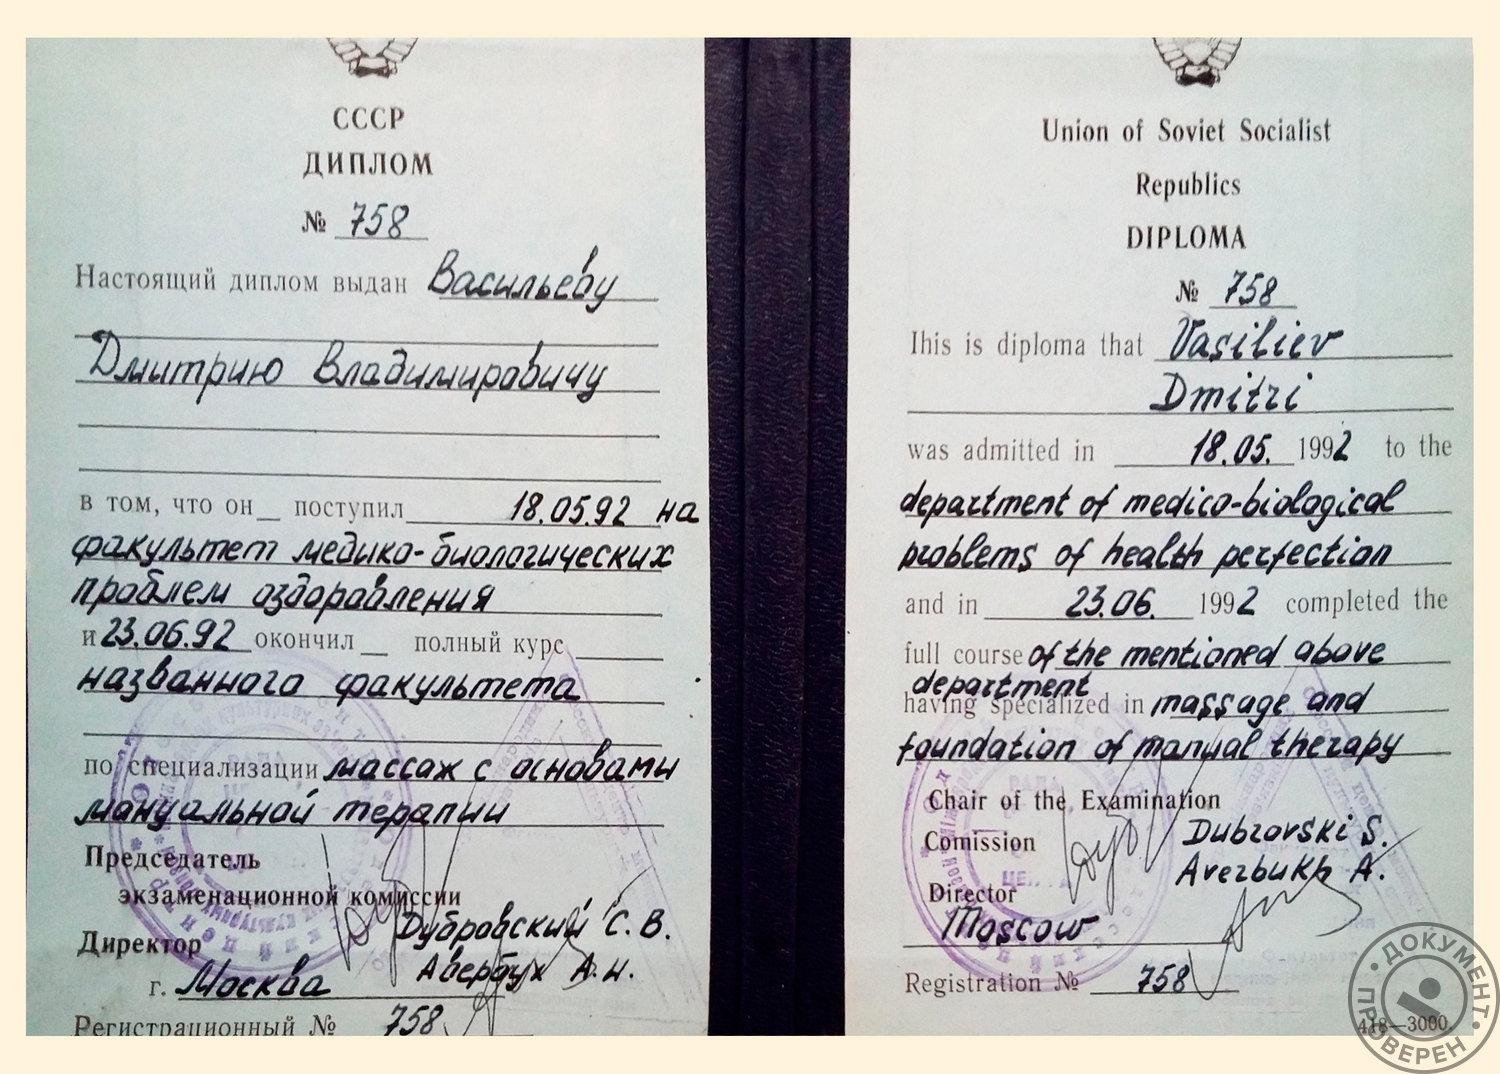 СССР
ДИПЛОМ
№ 758
Настоящий диплом выдан Васильеву
Дмитрию Владимировичу
в том, что он поступил 18.05.92 на
факультет медико-биологических
проблем оздоровления
и 23.06.92 окончил полный курс
названного факультета
по специализации массаж с основами
мануальной терапии
Председатель
экзаменационной комиссии
Дубровский С. В.
Директор
Авербух А. И.
г. Москва
Регистрационный № 758
Union of Soviet Socialist
Republics
DIPLOMA
№ 758
Ihis is diploma that Vasiliev
Dmitri
was admitted in 18.05. 1992 to the
department of medico-biological
problems of health perfection
and in 23.06. 1992 completed the
full course of the mentioned above
department
having specialized in massage and
foundation of manual therapy
Chair of the Examination
Comission Dubrovski S.
Averbukh A.
Director
Moscow
Registration № 758
418—3000.
ДОКУМЕНТ
ПРОВЕРЕН